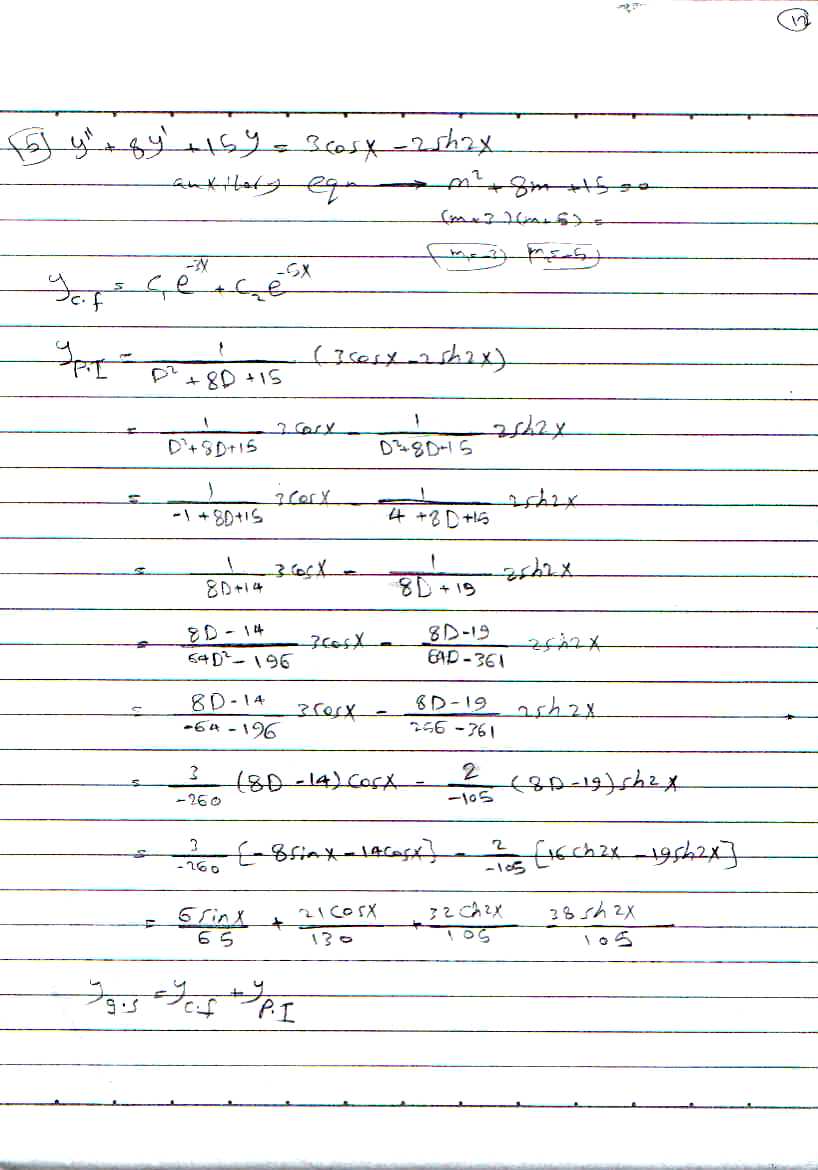 12
5 y'' + 8y' + 15y = 3cosx - 2sh2x
eqn → m² + 8m + 15 = 0
(m+3)(m+5) =
m=-3 m=-5
y_c.f = c₁e^-3x + c₂e^-5x
y_P.I = 1/(D² + 8D + 15) (3cosx - 2sh2x)
= 1/(D²+8D+15) 3cosx - 1/(D²+8D+15) 2sh2x
= 1/(-1+8D+15) 3cosx - 1/(4+8D+15) 2sh2x
= 1/(8D+14) 3cosx - 1/(8D+19) 2sh2x
= (8D-14)/(64D²-196) 3cosx - (8D-19)/(64D-361) 2sh2x
= (8D-14)/(-64-196) 3cosx - (8D-19)/(256-361) 2sh2x
= 3/-260 (8D-14)cosx - 2/-105 (8D-19)sh2x
= 3/-260 [-8sinx-14cosx] - 2/-105 [16ch2x-19sh2x]
= 6sinx/65 + 21cosx/130 + 32ch2x/105 38sh2x/105
y_g.s = y_c.f + y_P.I